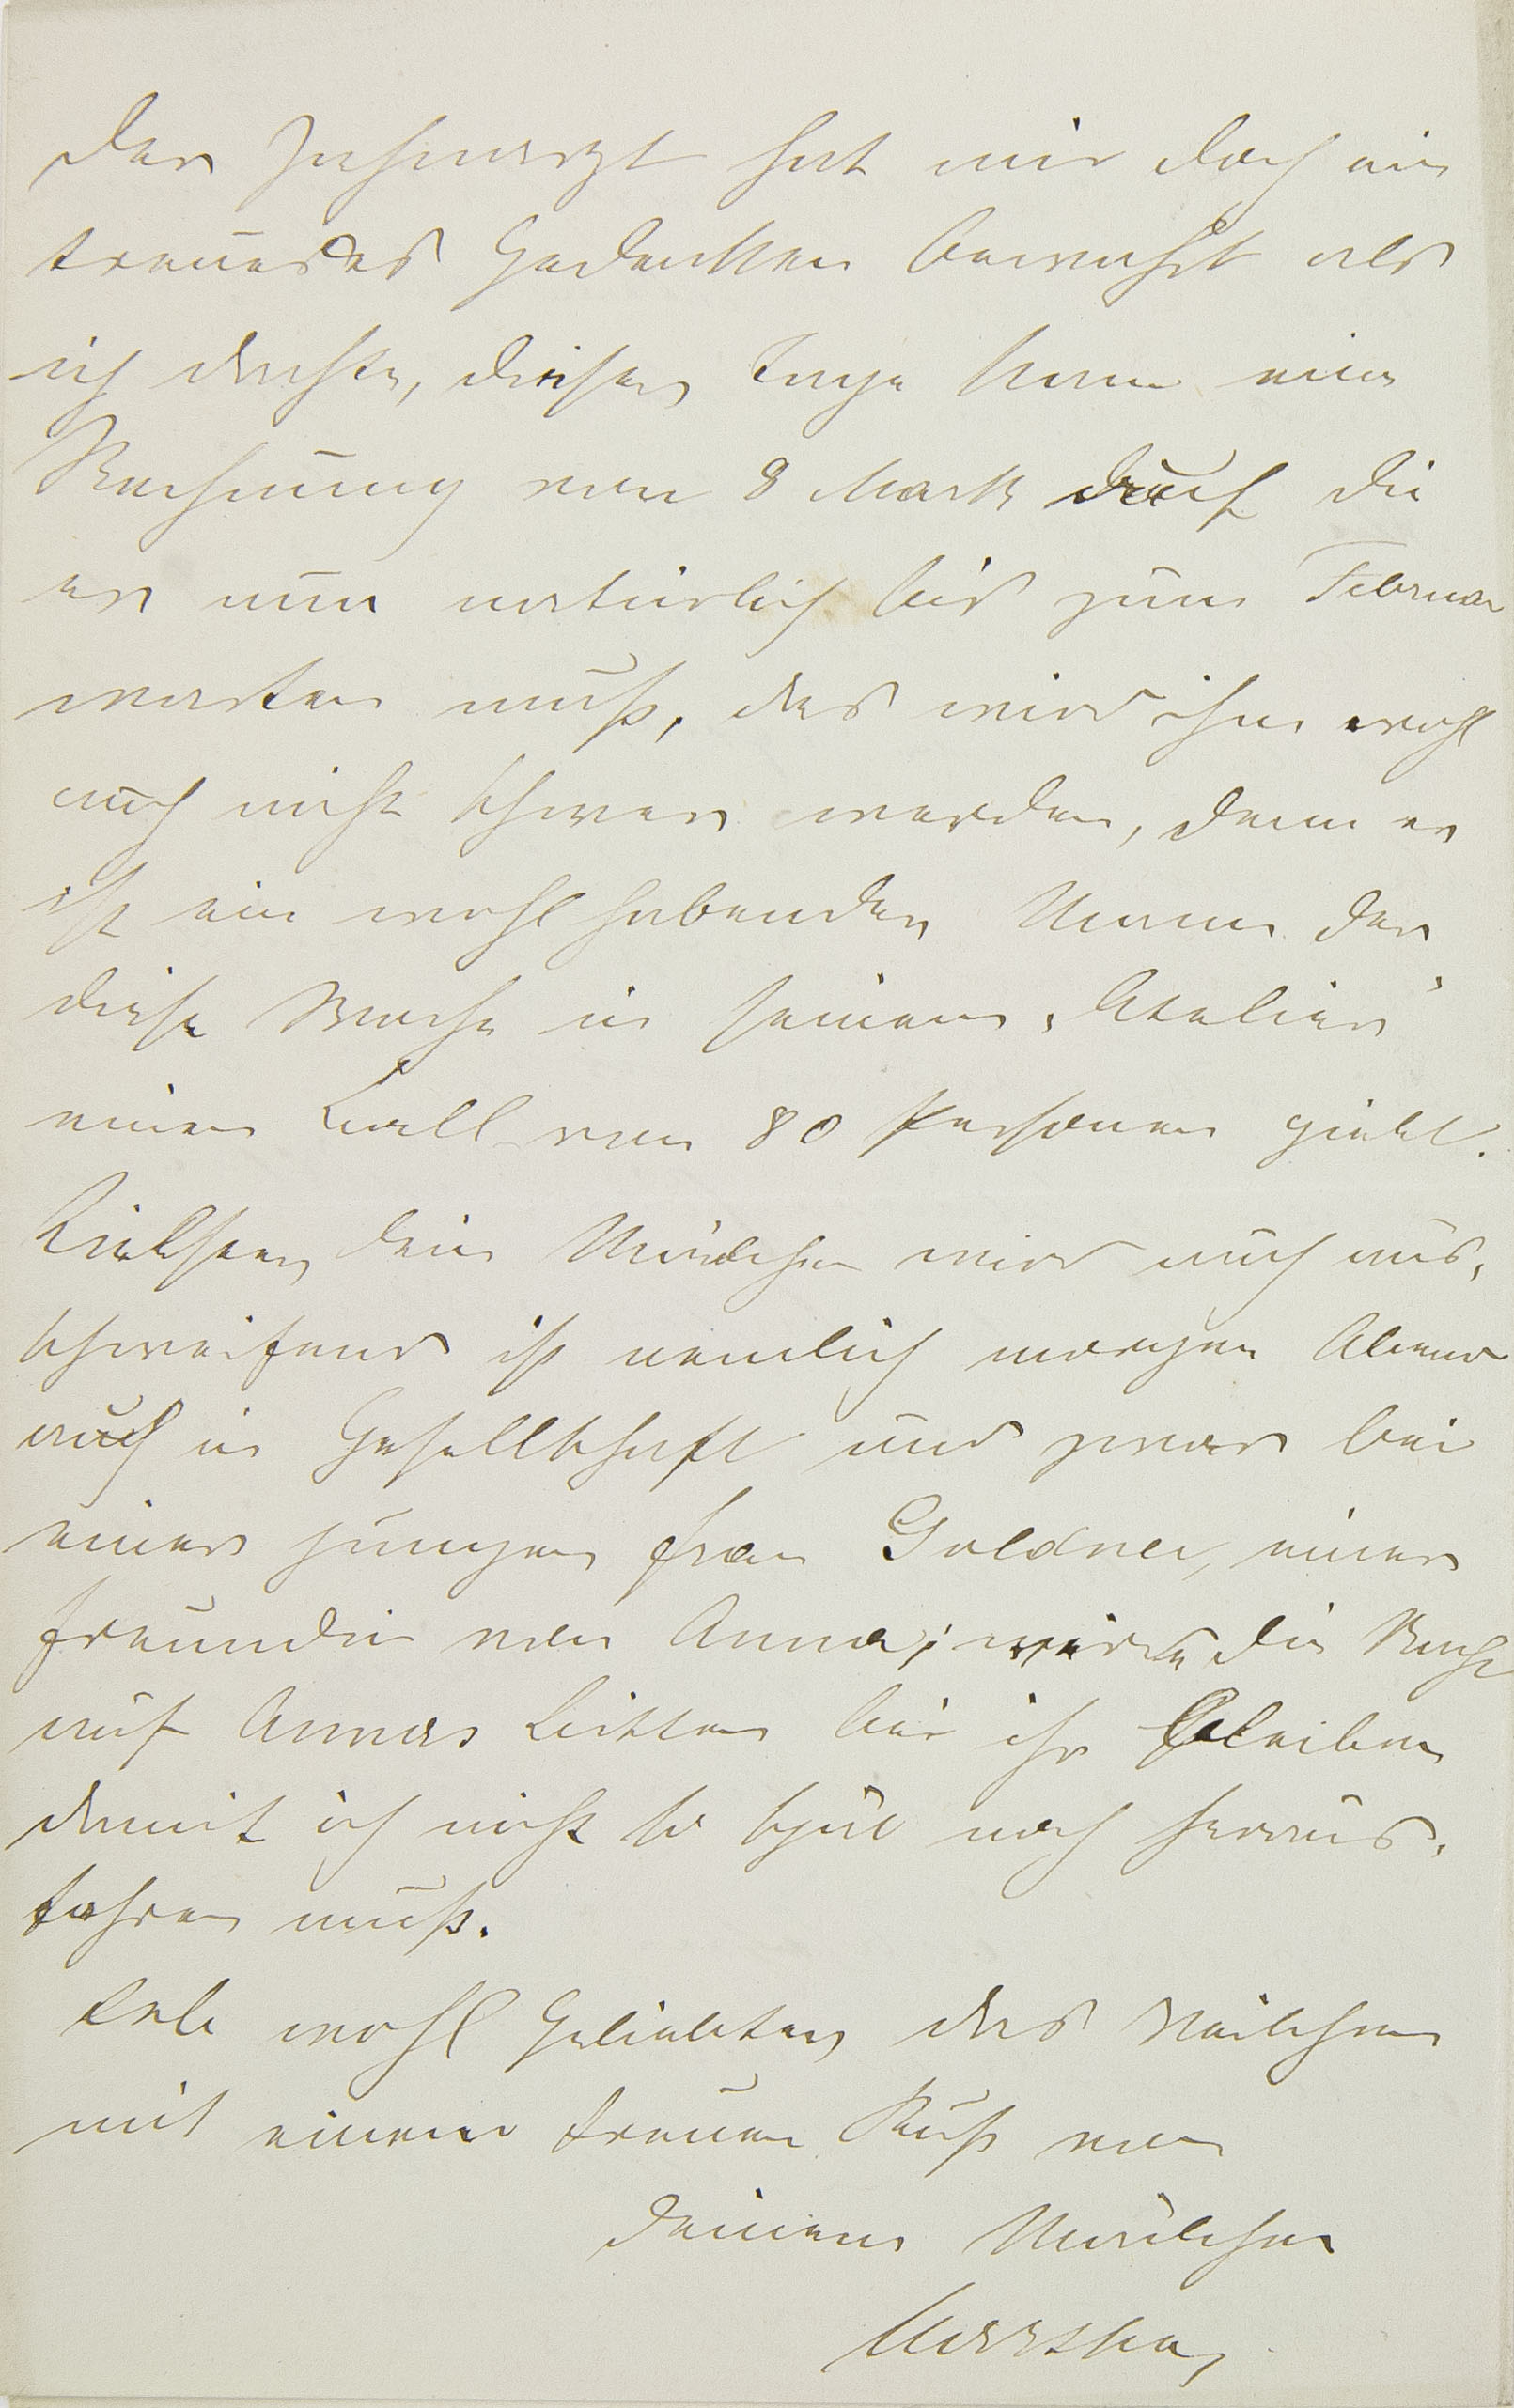 Der Zahnarzt hat mir doch ein
treueres Gedenken bewahrt als
ich dachte, dieser Tage kam eine
Rechnung von 8 Mark auf die
er nun natürlich bis zum Februar
warten muß, das wird ihm wohl
auch nicht schwer werden, denn er
ist ein wohlhabender Mann der
diese Woche in seinem „Atelier“
einen Ball von 80 Personen giebt.
Liebster, dein Mäulchen wird auch aus-
schweifend ist nemlich morgen Abend
auch in Gesellschaft und zwar bei
einer jungen Frau Goldner, einer
Freundin von Anna, werde die Nacht
auf Annas Bitten bei ihr bleiben
damit ich nicht so spät noch heraus-
fahren muß.
Lebe wohl Geliebter, das Veilchen
mit einem treuen Kuß von
deinem Mäulchen